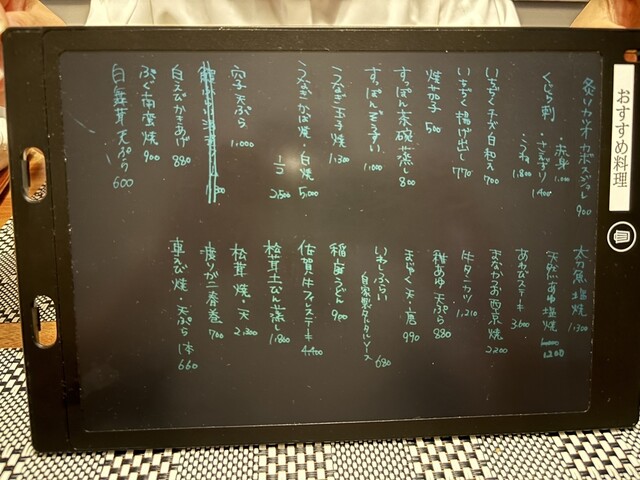 おすすめ料理
炙りカツオ カボスジュレ 900
くじら刺 ・赤身 1,000
・さえずり 1,400
・うね 1,800
いちじく チーズ白和え 700
いちじく 揚げ出し 770
焼茄子 500
すっぽん茶碗蒸し 800
すっぽんぞうすい 1,000
うなぎ玉子焼 1,300
うなぎかば焼・白焼 5,000
1/2 2,500
穴子天ぷら 1,000
白えびかきあげ 880
ぶぐ南蛮焼 900
白舞茸天ぷら 600
太刀魚塩焼 1,300
天然あゆ塩焼 1,200
あわびステーキ 3,600
まながつお西京焼 2,200
牛タンカツ 1,210
稚あゆ天ぷら 880
まいたけ天・唐 990
いわしふらい 自家製タルタルソース 680
稲庭うどん 900
佐賀牛フィステーキ 4,400
松茸土びん蒸し 1,800
松茸 焼・天 2,300
湯葉二番巻 700
車えび 焼・天ぷら 1本 660